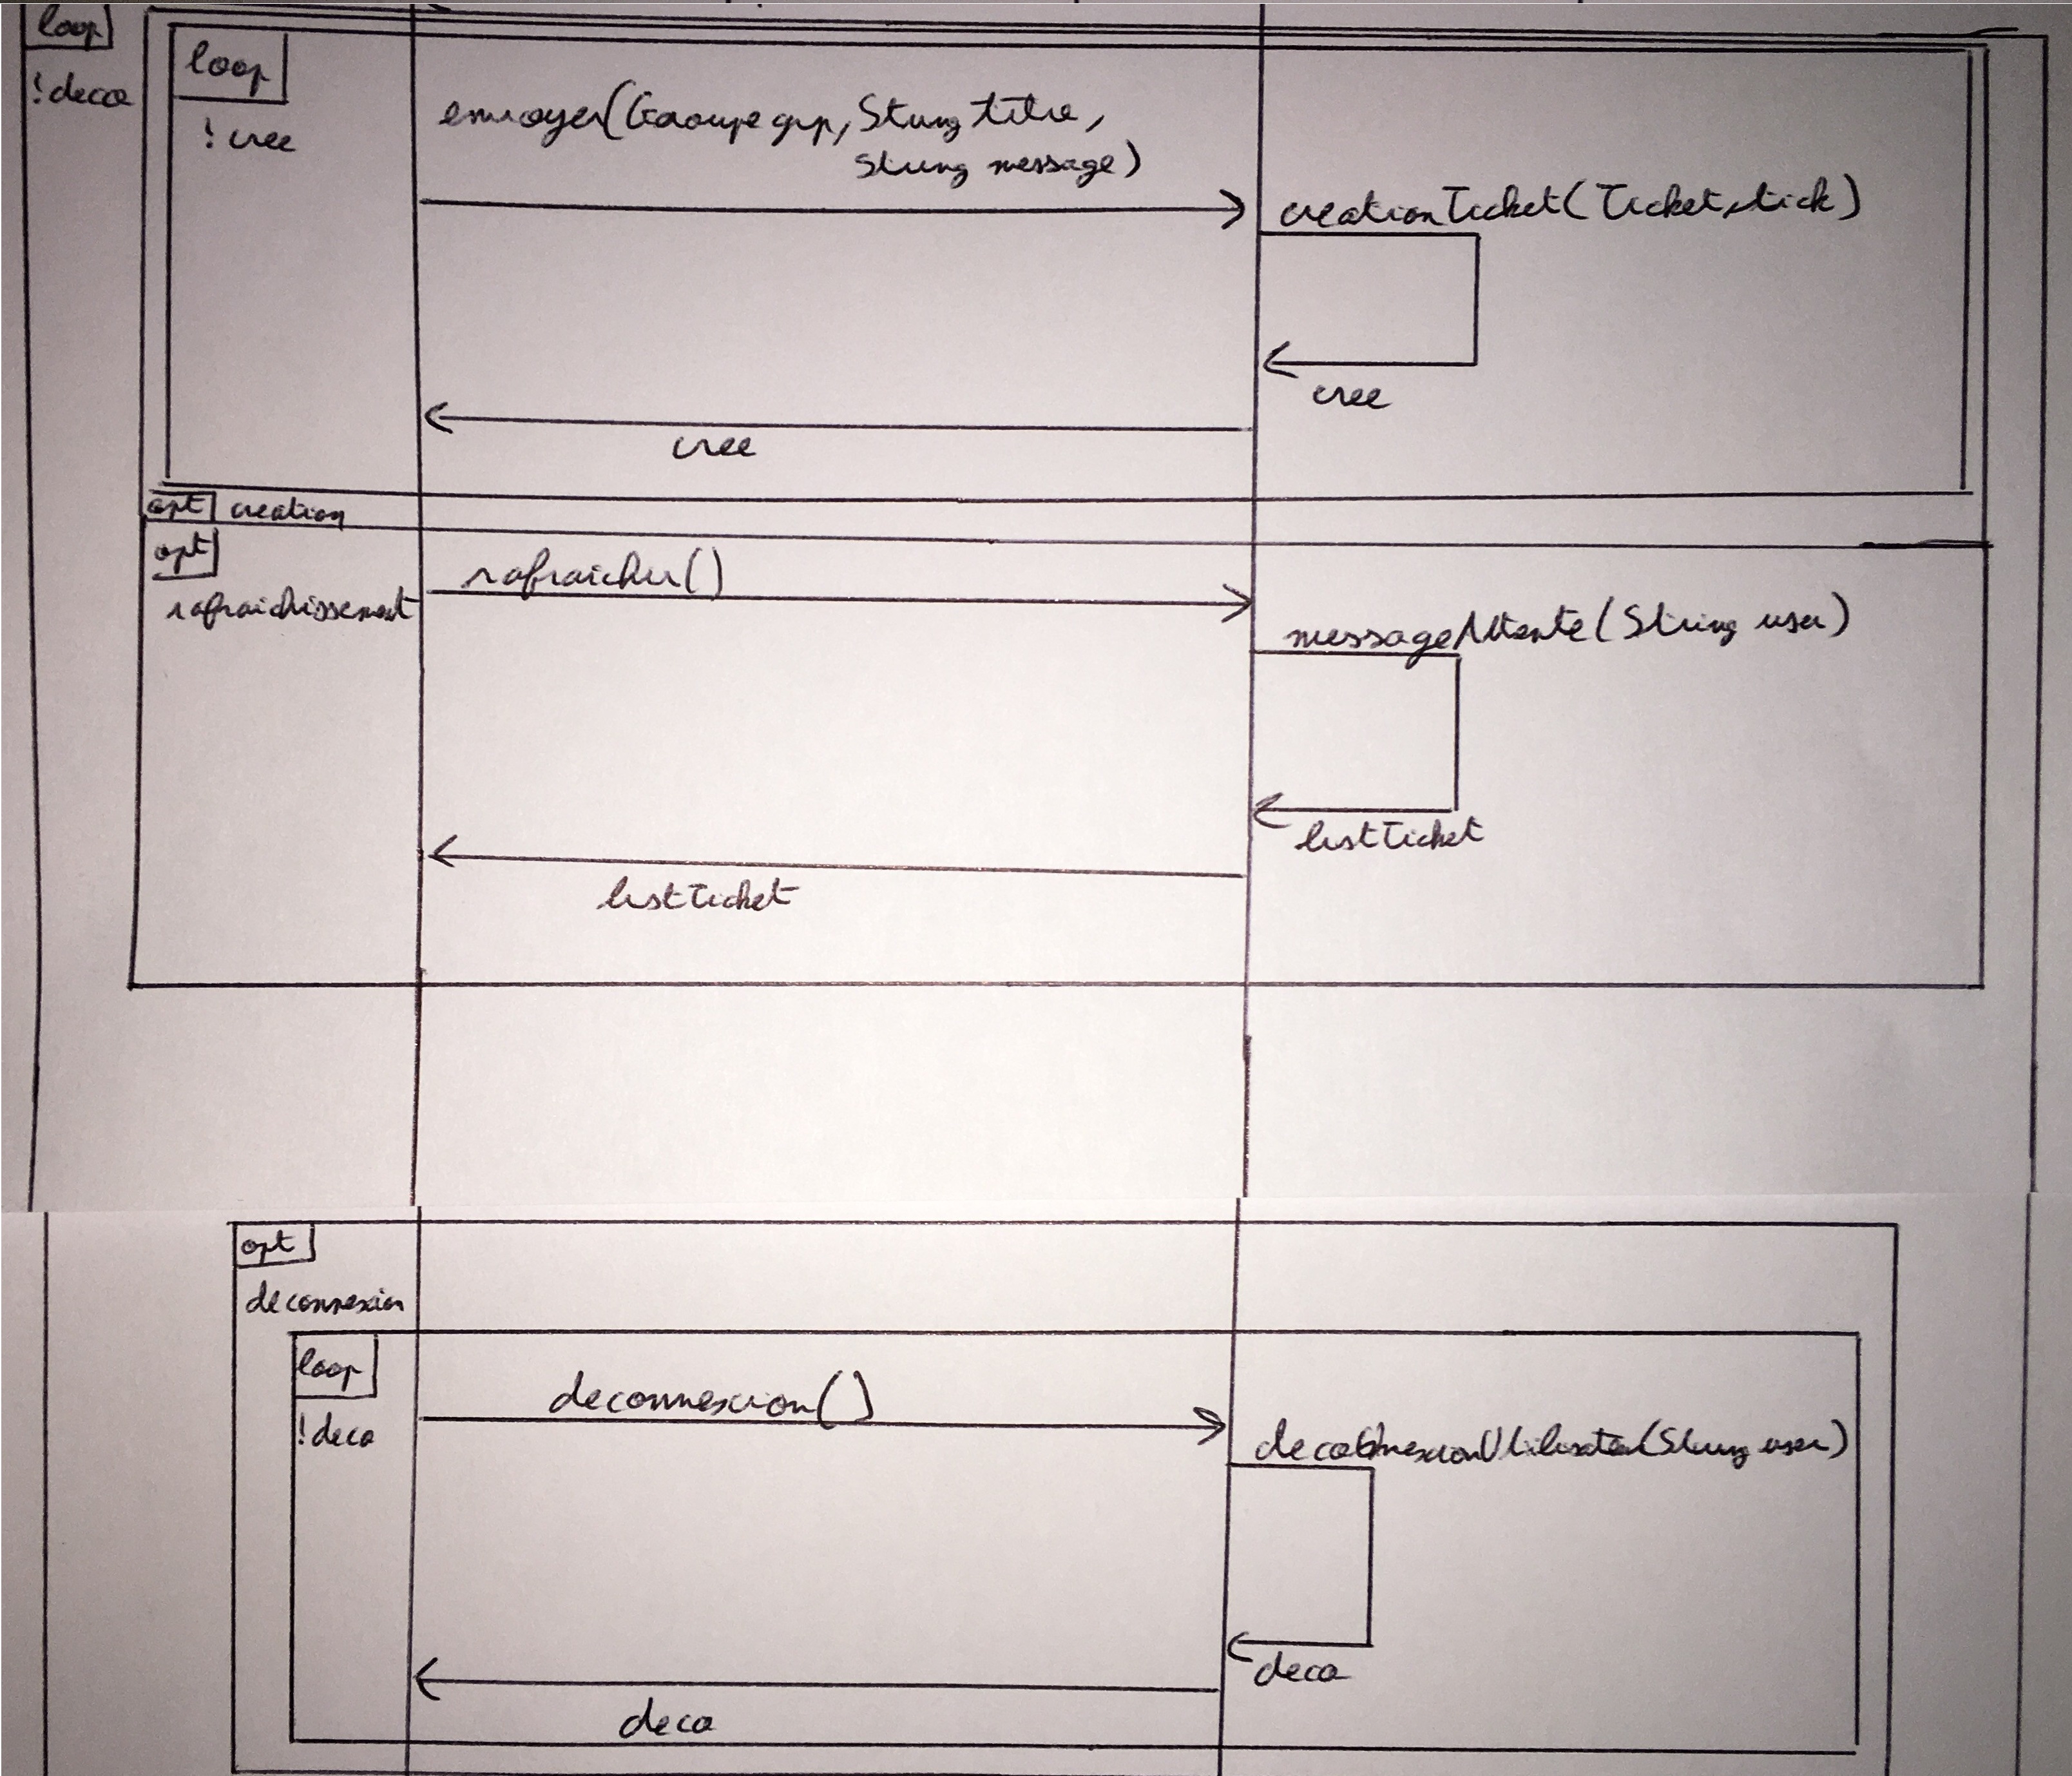 loop
!deco
loop
! cree
envoyer(Groupe grp, String titre,
String message)
creationTicket(Ticket tick)
cree
cree
opt creation
opt
rafraichissement
rafraichir()
messageAttente(String user)
listTicket
listTicket
opt
deconnexion
loop
!deco
deconnexion()
(String user)
deco
deco